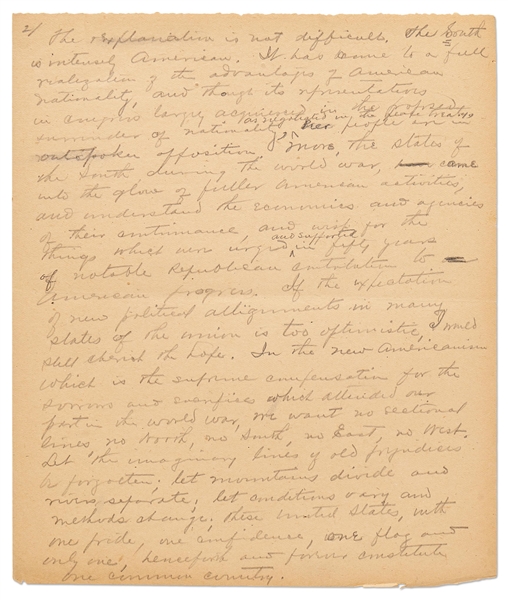 2/
The explanation is not difficult. The South
is intensely American. It has come to a full
realization of the advantages of American
nationality, and though its representatives
in congress largely acquiesced in the proposed
surrender of nationality, as negotiated in the peace treaty her people are in
outspoken opposition. More, the states of
the South during the world war, came
into the glow of fuller American activities,
and understand the economics and agencies
of their continuance, and wish for the
things which were urged and supported in fifty years
of notable Republican contribution to
American progress. If the expectation
of new political allignments in many
states of the union is too optimistic, I would
still cherish the hope. In the new Americanism
which is the supreme compensation for the
sorrows and sacrifices which attended our
part in the world war, we want no sectional
lines, no North, no South, no East, no West.
Let the imaginary lines of old prejudices
be forgotten; let mountains divide and
rivers separate, let conditions vary and
methods change; these United States, with
one pride, one confidence, one flag and
only one, henceforth and forever constitute
one common country.